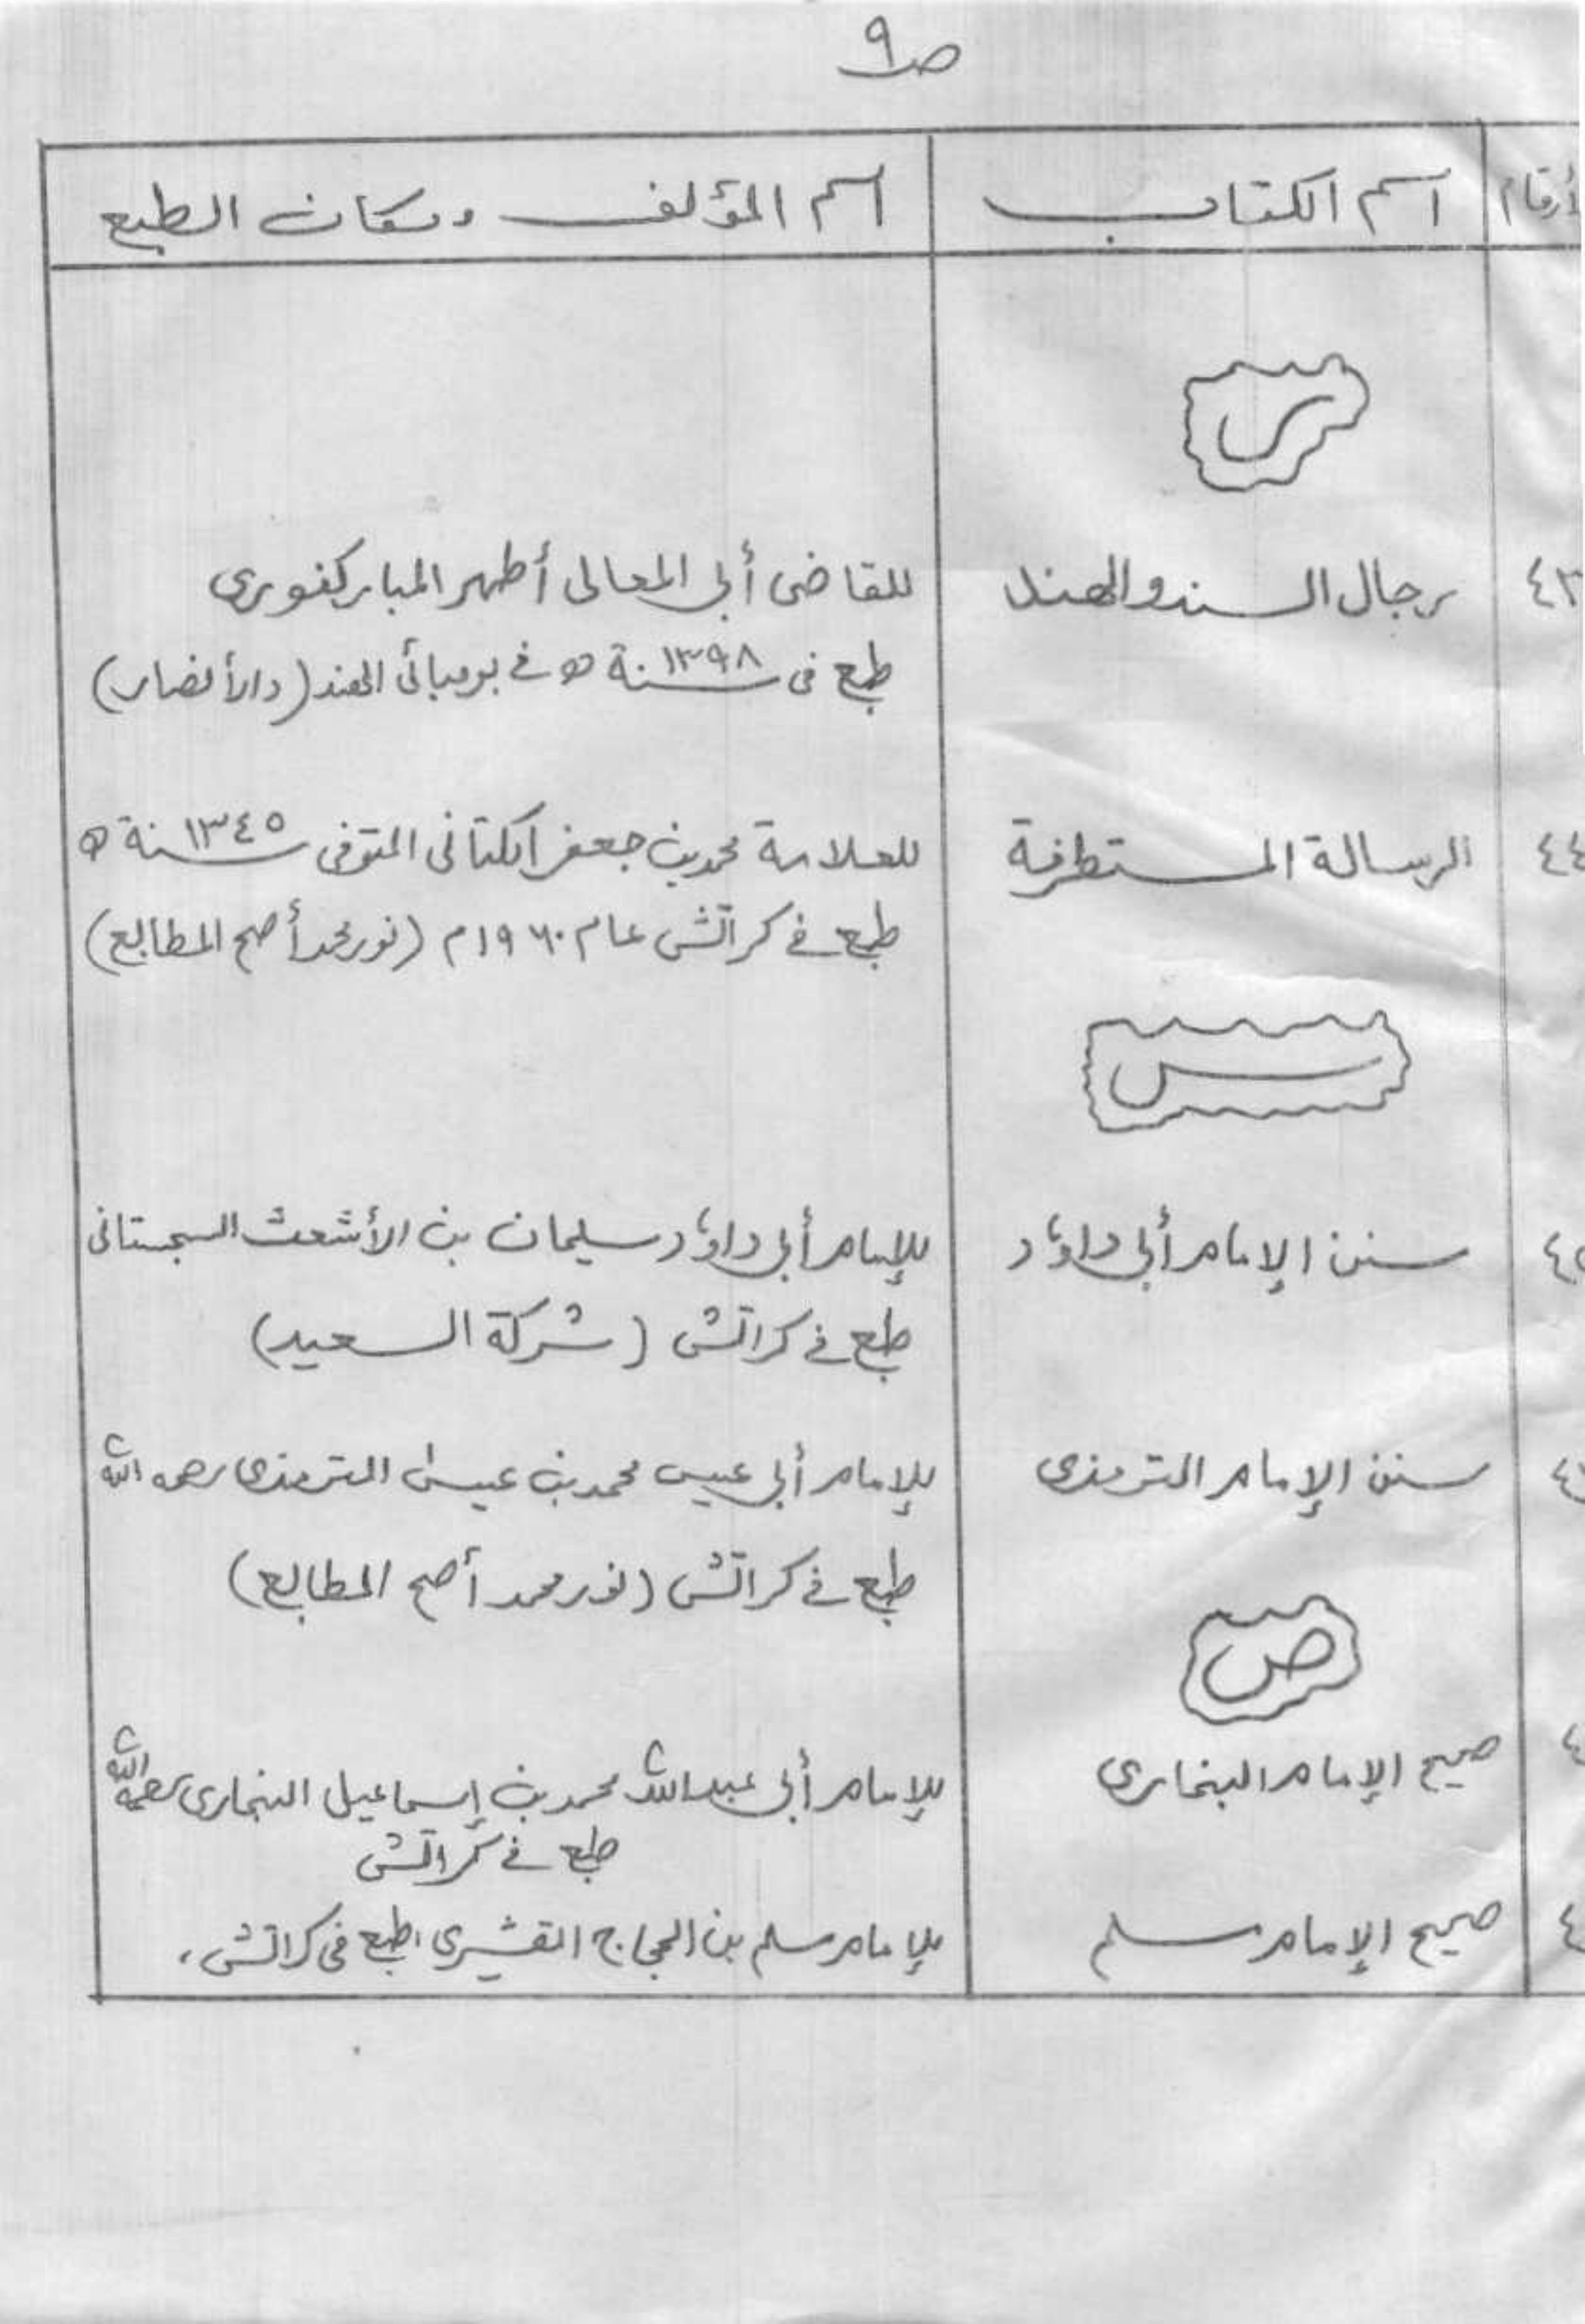 ص٩
أرقام اسم الكتاب اسم المؤلف ومكان الطبع
ر
٤٣ رجال السند والهند للقاضى أبى المعالى أطهر المباركفورى
طبع فى سنة ١٣٩٨ ه فى بومبائى الهند (دار الأنصار)
٤٤ الرسالة المستطرفة للعلامة محمد بن جعفر الكتانى المتوفى سنة ١٣٤٥ ه
طبع فى كراتشى عام ١٩٦٠م (نور محمد أصح المطابع)
س
سنن الإمام أبى داؤد للإمام أبى داؤد سليمان بن الأشعث السجستانى
طبع فى كراتشى (شركة السعيد)
سنن الإمام الترمذى للإمام أبى عيسى محمد بن عيسىٰ الترمذى رحمه الله
طبع فى كراتشى (نور محمد أصح المطابع)
ص
صحيح الإمام البخارى للإمام أبى عبد الله محمد بن إسماعيل البخارى رحمه الله
طبع فى كراتشى
صحيح الإمام مسلم للإمام مسلم بن الحجاج القشيرى، طبع فى كراتشى،